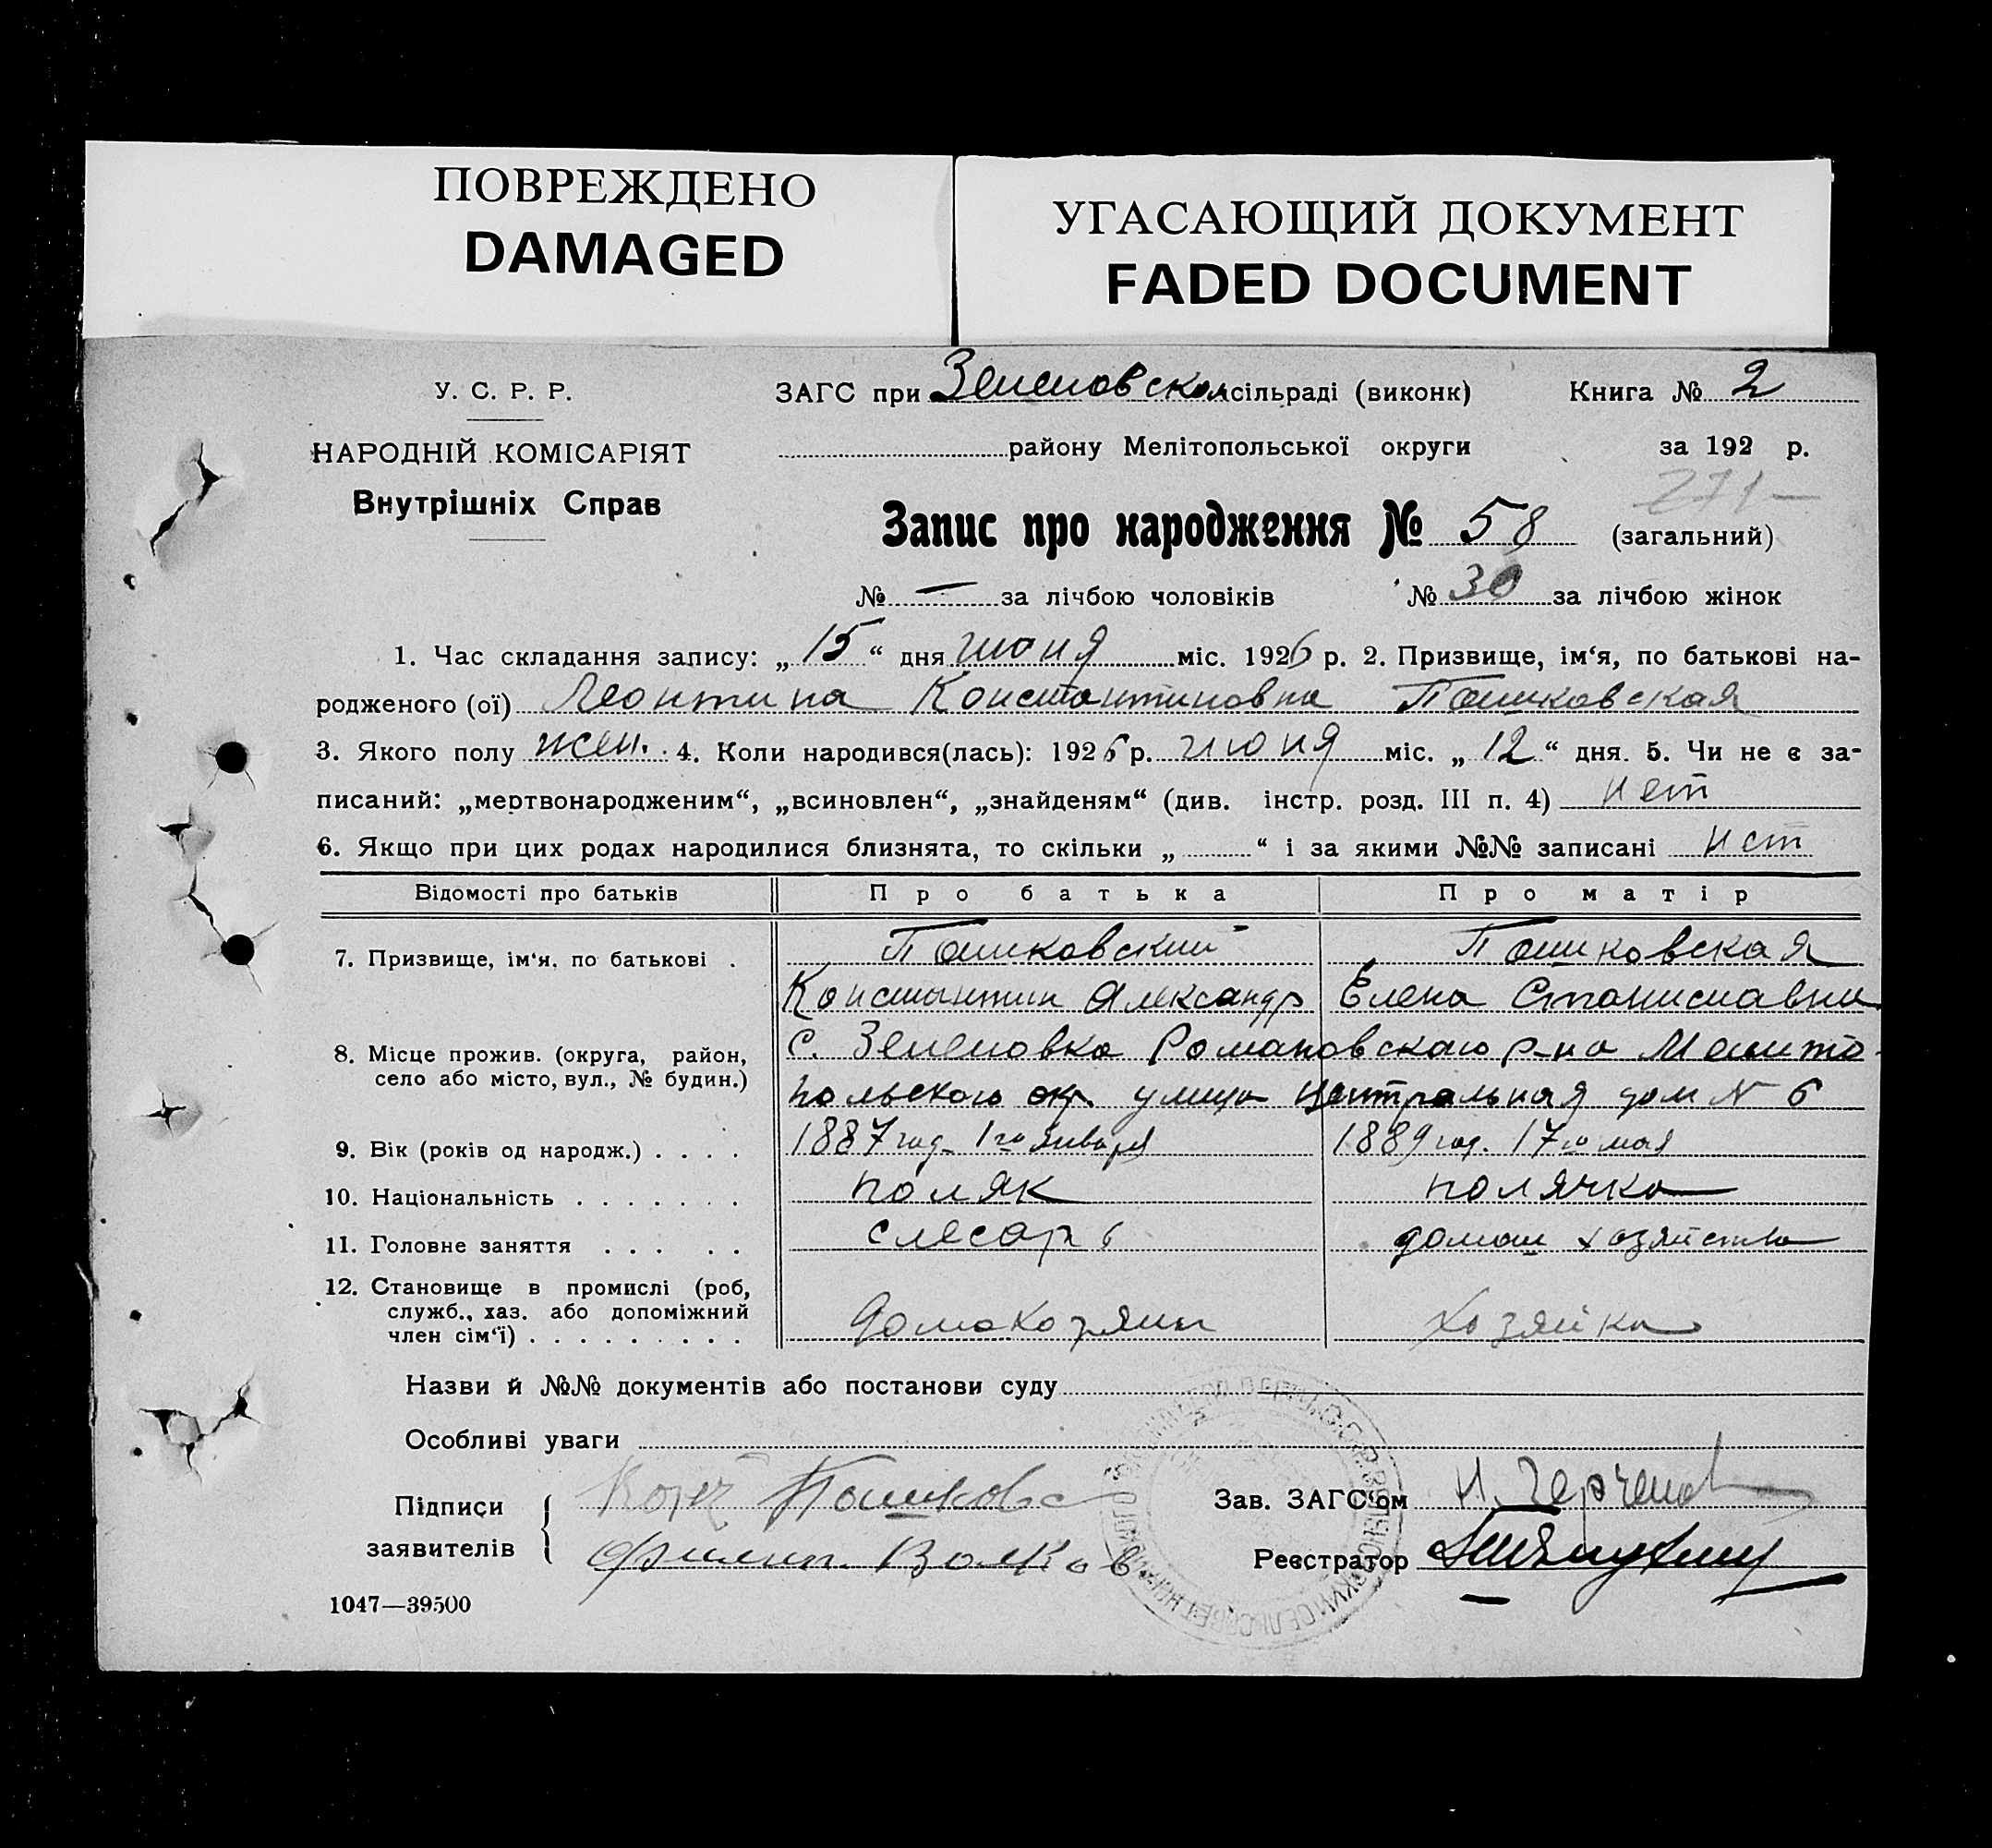 ПОВРЕЖДЕНО
DAMAGED
УГАСАЮЩИЙ ДОКУМЕНТ
FADED DOCUMENT
У. С. Р. Р.
НАРОДНІЙ КОМІСАРІЯТ
Внутрішніх Справ
ЗАГС при Зеленовском сільраді (виконк) Книга № 2
району Мелітопольської округи за 192 р.
271
Запис про народження № 58 (загальний)
№ — за лічбою чоловіків № 30 за лічбою жінок
1. Час складання запису: „ 15 “ дня июня міс. 1926 р. 2. Призвище, ім‘я, по батькові на-
родженого (ої) Леонтина Константиновна Пашковская
3. Якого полу жен. 4. Коли народився(лась): 1926 р. июня міс. „ 12 “ дня. 5. Чи не є за-
писаний: „мертвонародженим“, „всиновлен“, „знайденям“ (див. інстр. розд. III п. 4) нет
6. Якщо при цих родах народилися близнята, то скільки „ “ і за якими №№ записані нет
Відомості про батьків Про батька Про матір
7. Призвище, ім‘я, по батькові . Пашковский Пашковская
Константин Александр Елена Станиславна
8. Місце прожив. (округа, район, с. Зеленовка Романовского р-на Мелито-
село або місто, вул., № будин.) польского окр. улица Центральная дом N 6
9. Вік (років од народж.) . . . . 1887 год. 1го января 1889 год. 17го мая
10. Національність . . . . . . . поляк полячка
11. Головне заняття . . . . . слесарь домаш хозяйство
12. Становище в промислі (роб,
служб., хаз. або допоміжний
член сім‘ї) . . . . . . . . . домохозяин хозяйка
Назви й №№ документів або постанови суду
Особливі уваги
Підписи Пашковс Зав. ЗАГС‘ом Н.
заявителів Филип. Волков Реєстратор
1047—39500